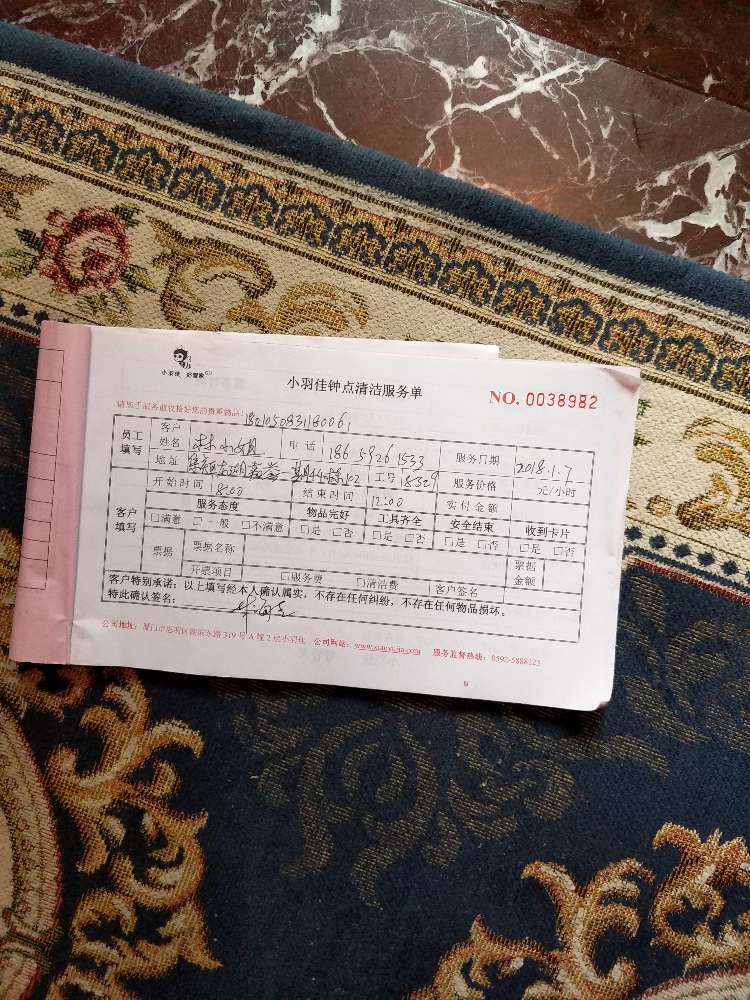 小羽佳 好管家
小羽佳钟点清洁服务单
NO. 0038982
请您于服务前收捡好您的贵重物品:
员工填写 客户姓名 林小姐 电话 186 5926 1533 服务日期 2018.1.7
地址 102 工号 18329 服务价格 元/小时
开始时间 8:00 结束时间 12:00 实付金额
客户填写 服务态度 物品完好 工具齐全 安全结束 收到卡片
□满意 □一般 □不满意 □是 □否 □是 □否 □是 □否 □是 □否
票据 票据名称 票据金额
开票项目 □服务费 □清洁费 客户签名
客户特别承诺:以上填写经本人确认属实,不存在任何纠纷,不存在任何物品损坏。
特此确认签名:
公司地址:厦门市思明区湖滨东路 319 号 A 幢 2 层小羽佳 公司网站:www.xiaoyujia.com 服务监督热线:0592-5888123